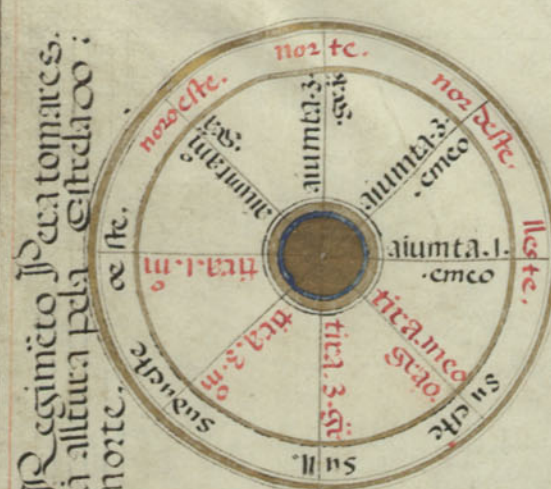 Regimẽto Pera tomares.
a alltura pela Estrela do :
norte.
norte.
nordeste.
lleste.
sueste
sull.
suduueste
oeste.
noroeste.
aiumta.3.
graos
aiumta.3.
.emeo
aiumta.1.
.emeo
tira.meo
Grao.
tira 3 gr̃
tira.3.mº
tira.1.mº
aiumtamº
.gra